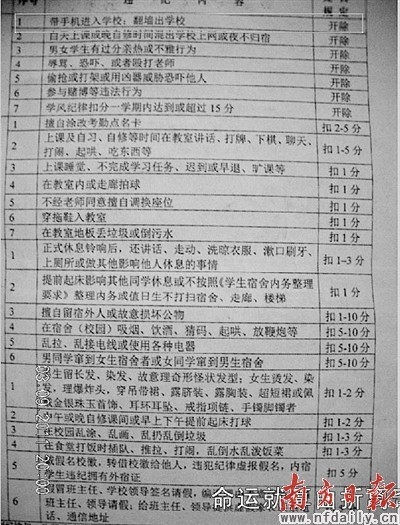 序号 违纪内容
规定
1 带手机进入学校；翻墙出学校 开除
2 白天上课或晚自修时间混出学校上网或夜不归宿 开除
3 男女学生有过分亲热或不雅行为 开除
4 辱骂、恐吓、或者殴打老师 开除
5 偷抢或打架或用凶器威胁恐吓他人 开除
6 参与赌博等违法行为 开除
7 学风纪律扣分一学期内达到或超过 15 分 开除
1 擅自涂改考勤点名卡 扣 2-5 分
2 上课及自习、自修等时间在教室讲话、打牌、下棋、聊天、
打闹、起哄、吃东西等 扣 1-5 分
3 上课睡觉、不完成学习任务、迟到或早退、旷课等 扣 1 分
4 在教室内或走廊拍球 扣 1 分
5 不经老师同意擅自调换座位 扣 1 分
6 穿拖鞋入教室 扣 1 分
7 在教室地板丢垃圾或倒污水 扣 1 分
1 正式休息铃响后，还讲话、走动、洗晾衣服、漱口刷牙、
上厕所或做其他影响他人休息的事情 扣 1-3 分
2 提前起床影响其他同学休息或不按照《学生宿舍内务整理
要求》整理内务或值日生不打扫宿舍、走廊、楼梯 扣 1 分
3 擅自留宿外人或故意损坏公物 扣 1-10 分
4 在宿舍（校园）吸烟、饮酒、猜码、起哄、放鞭炮等 扣 5-10 分
5 乱拉、乱接电线或使用各种电器 扣 5-10 分
6 男同学窜到女生宿舍者或女同学窜到男生宿舍 扣 5-10 分
1 男生留长发、染发、故意理奇形怪状发型；女生烫发、染
发、理爆炸头，穿吊带裙、露脐装、露胸装、超短裙或佩
金银珠玉首饰、耳环耳坠、戒指项链、手镯脚镯者 扣 1-2 分
中午或晚自修课间或早上下午提前起床打球 扣 1-2 分
在校园乱涂、乱画、乱扔乱倒垃圾 扣 1-3 分
在食堂打饭时插队、推拉、打闹、乱倒水乱泼饭菜 扣 1-3 分
假名校徽、转借校徽给他人、违犯纪律虚报假名，内宿
学生违纪拥有外宿证
6 冒班主任、学校领导签名请假，
班主任、领导请假、给班主任、领导
话、通信地址
命运就
南方日报
www.nfdaily.cn